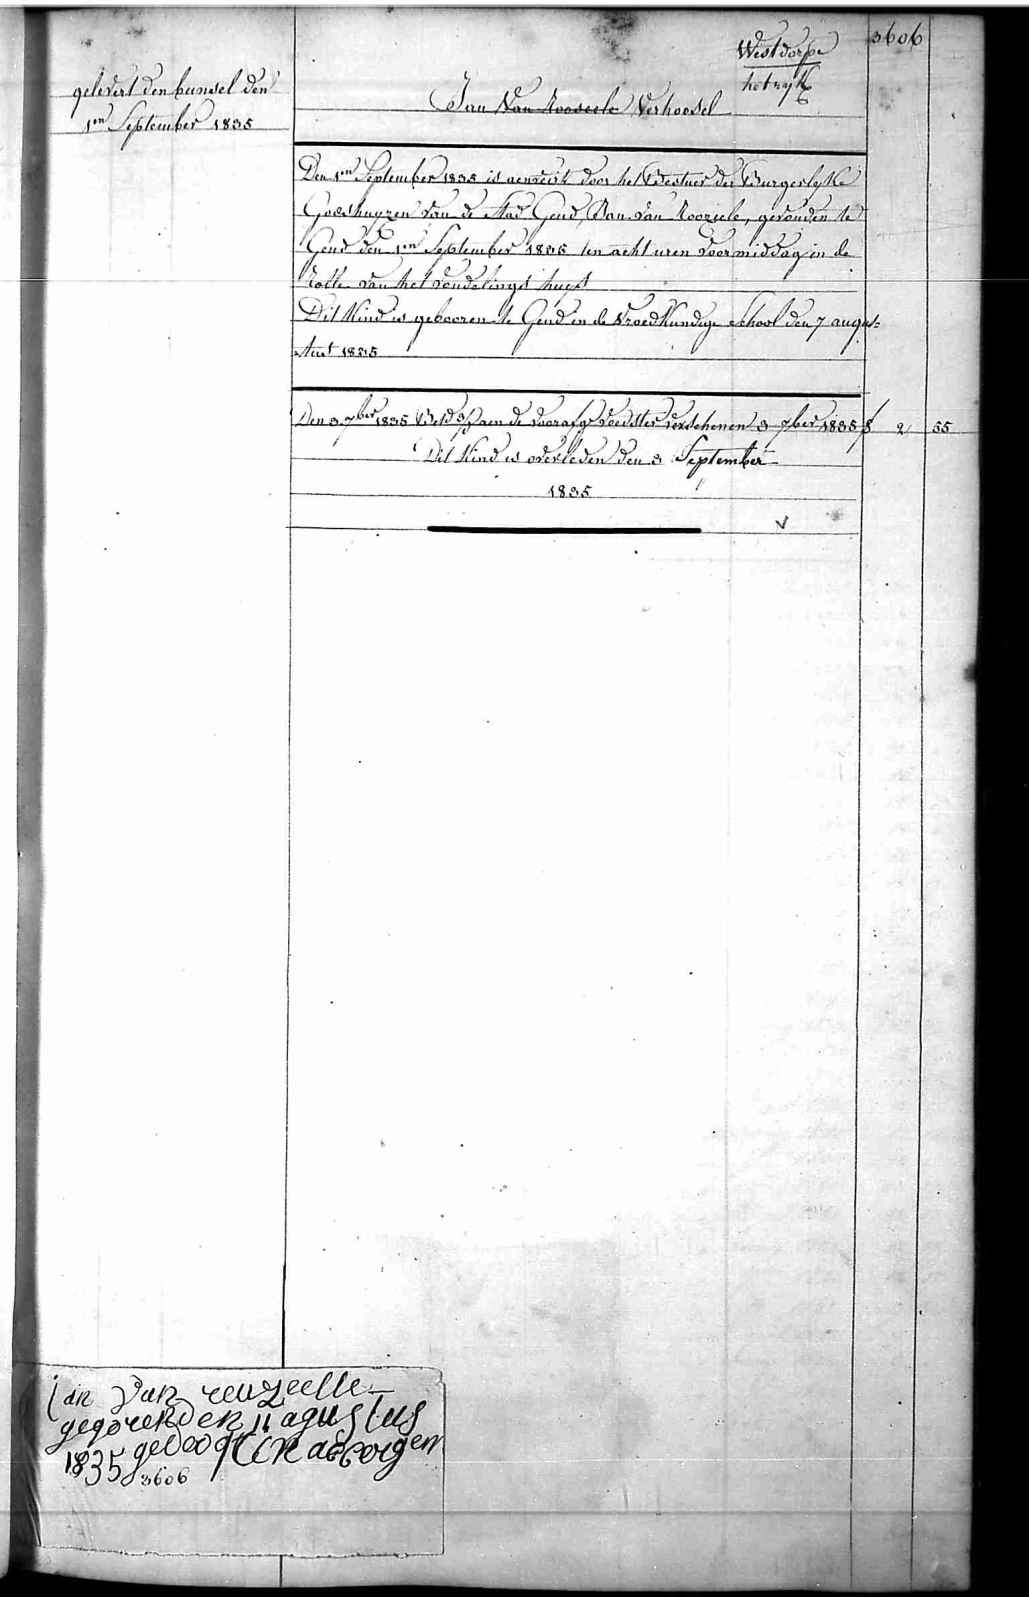 3606
Westdorpe
het rijk
gelevert den bunsel den
1en September 1835
Jan Van Rooseele Verhoosel
Den 1en September 1835 is aenveirt door het Bestuer der Burgerlyke
Godshuyzen van de Stad Gend, Jan Van Rooziele, gevonden te
Gend den 1en September 1835 ten acht uren voormiddag in de
rolle van het vondelings huys
Dit Kind is gebooren te Gend in de Vroedkundige School den 7 augus=
tus 1835
Den 3 7ber 1835 aen de voorafge voedster verschenen 3 7ber 1835 f 2 55
Dit Kind is overleden den 3 September
1835
Jan Van reuzeelle
geboren den 11 agustus
1835 gedoogt in acborgen
3606